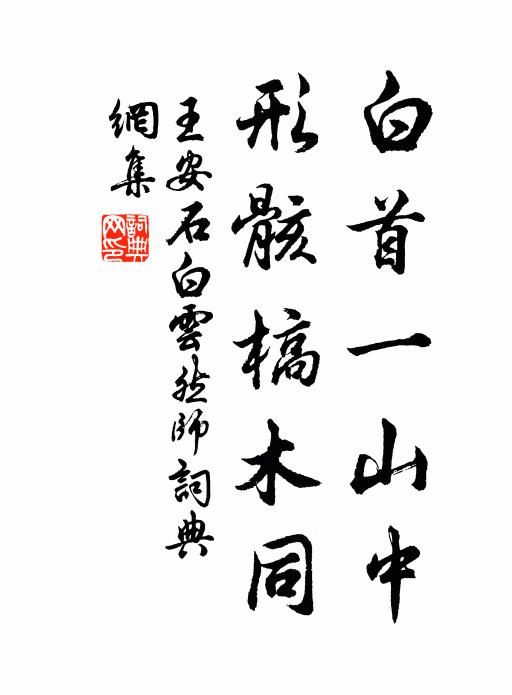 白首一山中
形骸槁木同
王安石白雲然師詞典
網集
詞典網印